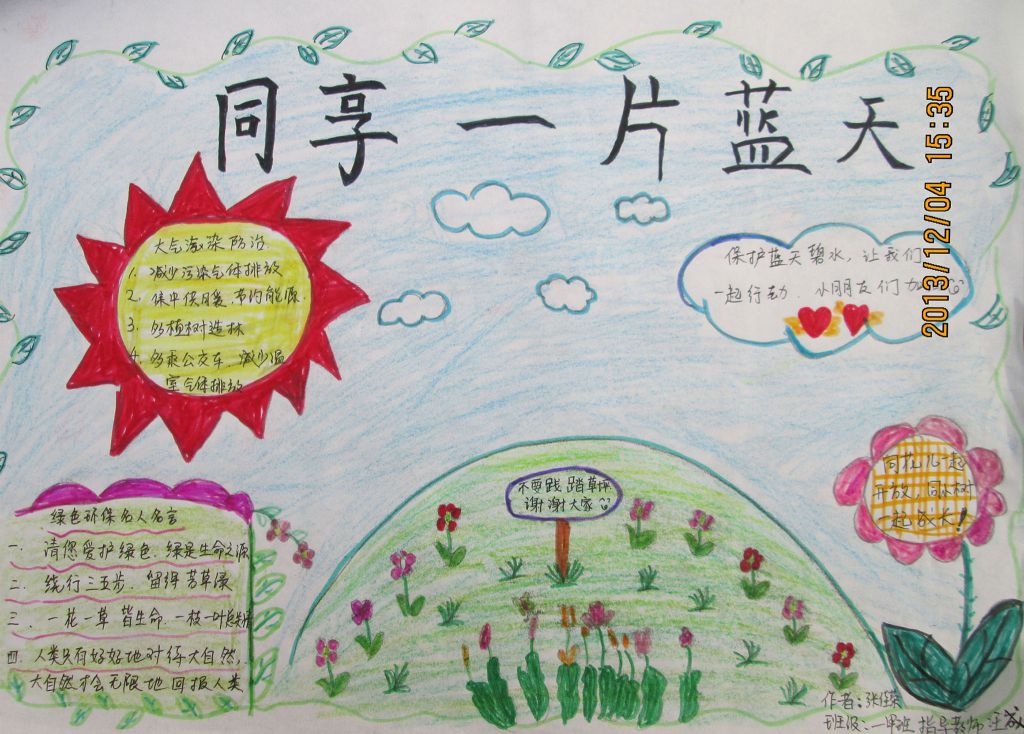 同享一片蓝天
2013/12/04 15:35
大气污染防治
1. 减少污染气体排放
2. 集中供暖,节约能源.
3. 多植树造林
4. 多乘公交车,减少温
室气体排放
保护蓝天碧水,让我们
一起行动. 小朋友们加
不要践踏草坪
谢谢大家
同花儿一起
开放,同小树
一起成长!
绿色环保名人名言
一. 请您爱护绿色.绿是生命之源
二. 绕行三五步.留得芳草绿
三. 一花一草皆生命.一枝一叶总关情
四. 人类只有好好地对待大自然,
大自然才会无限地回报人类
作者:张
班级:一甲班 指导教师 汪